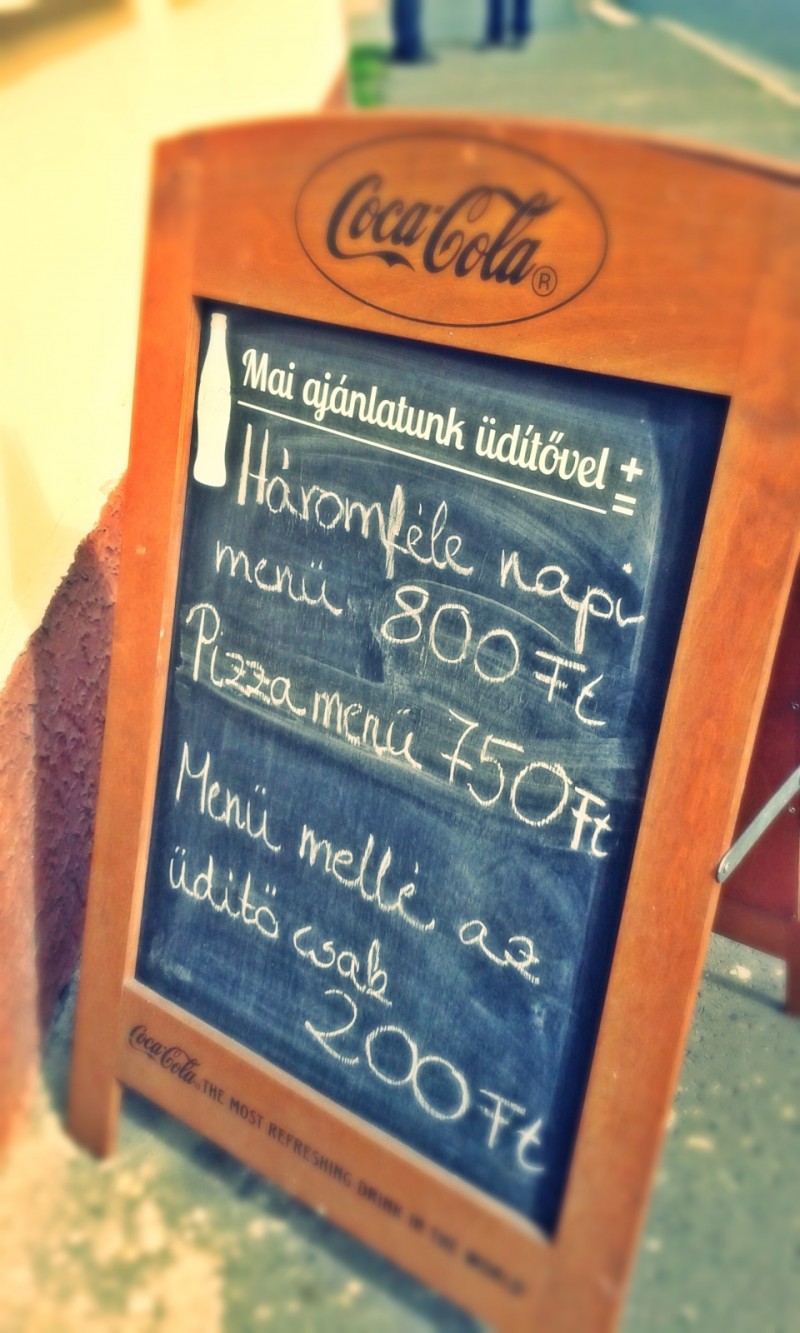 Coca-Cola ®
Mai ajánlatunk üdítővel +
=
Háromféle napi
menü 800 Ft
Pizza menü 750 Ft
Menü mellé az
üditö csak
200 Ft
Coca-Cola THE MOST REFRESHING DRINK IN THE WORLD